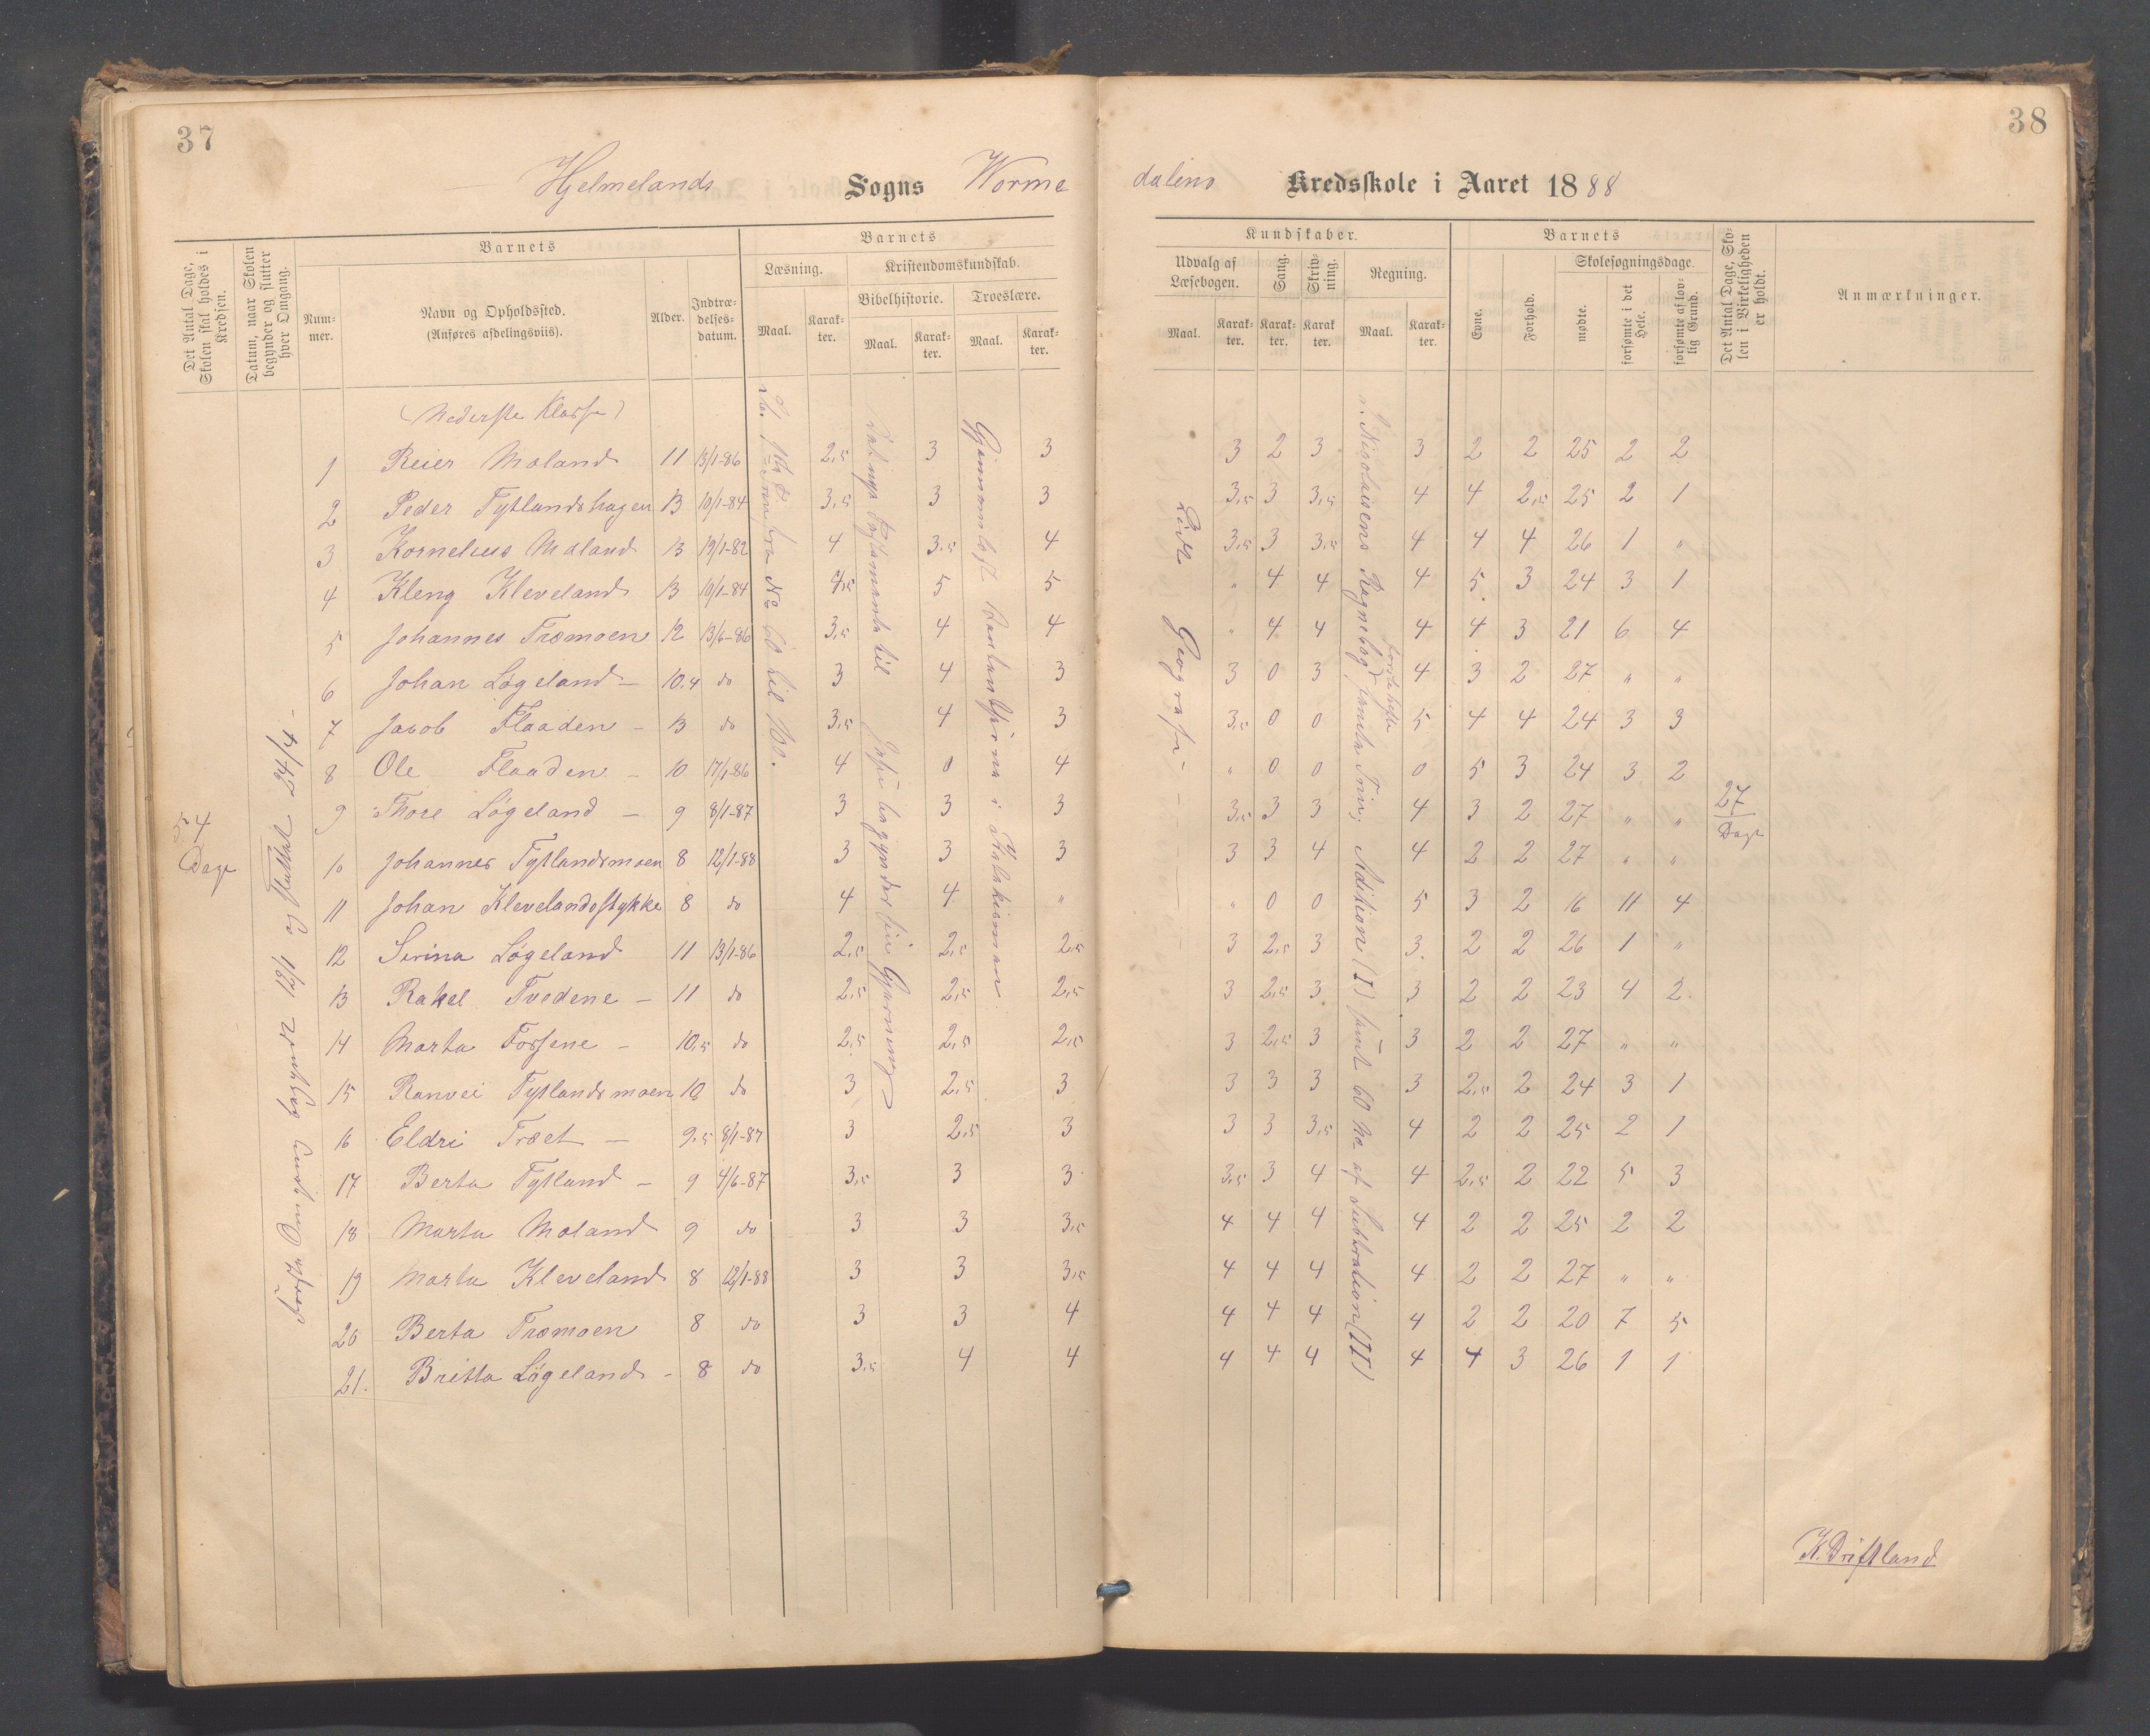 37
38
Hjelmelands Sogns Worme
dalens Kredsskole i Aaret 1888
Det Antal Dage, Skolen skal holdes i Kredsen.
Datum, naar Skolen begynder og slutter hver Omgang.
Barnets
Num-mer.
Navn og Opholdssted.
(Anføres afdelingsviis).
Alder.
Indtræ-delses-datum.
Barnets
Læsning.
Kristendomskundskab.
Bibelhistorie.
Troeslære.
Maal.
Karak-ter.
Maal.
Karak-ter.
Maal.
Karak-ter.
Kundskaber.
Udvalg af Læsebogen.
Sang.
Skriv-ning.
Regning.
Maal.
Karak-ter.
Karak-ter.
Karak-ter.
Maal.
Karak-ter.
Barnets
Evne.
Forhold.
Skolesøgningsdage.
mødte.
forsømte i det Hele.
forsømte af lov-lig Grund.
Det Antal Dage, Sko-len i Virkeligheden er holdt.
Anmærkninger.
(Nederste Klasse)
1 Reier Moland 11 13/1-86 2,5 3 3 3 2 3 3 2 2 25 2 2
2 Peder Tytlandshagen 13 10/1-84 3,5 3 3 3,5 3 3,5 4 4 2,5 25 2 1
3 Kornelius Moland 13 19/1-82 4 3,5 4 3,5 3 3,5 4 4 4 26 1 "
4 Kleng Kleveland 13 10/1-84 4,5 5 5 " 4 4 4 5 3 24 3 1
5 Johannes Træmoen 12 13/6-86 3,5 4 4 " 4 4 4 4 3 21 6 4
6 Johan Løgeland 10,4 do 3 4 3 3 0 3 4 3 2 27 " "
7 Jacob Flaaden - 13 do 3,5 4 3 3,5 0 0 5 4 4 24 3 3
8 Ole Flaaden - 10 17/1-86 4 0 4 " 0 0 0 5 3 24 3 2
9 Thore Løgeland - 9 8/1-87 3 3 3 3,5 3 3 4 3 2 27 " "
10 Johannes Tytlandsmoen 8 12/1-88 3 3 3 3 3 4 4 2 2 27 " "
11 Johan Klevelandsstykke 8 do 4 4 " " 0 0 5 3 2 16 11 4
12 Serina Løgeland 11 13/1-86 2,5 2,5 2,5 3 2,5 3 3 2 2 26 1 "
13 Rakel Tvedene - 11 do 2,5 2,5 2,5 3 2,5 3 3 2 2 23 4 2
14 Marta Fossene - 10,5 do 2,5 2,5 2,5 3 2,5 3 3 2 2 27 " "
15 Ranvei Tytlandsmoen 10 do 3 2,5 3 3 3 3 3 2,5 2 24 3 1
16 Eldri Træet - 9,5 8/1-87 3 2,5 3 3 3 3,5 4 2 2 25 2 1
17 Berta Tytland - 9 4/6-87 3,5 3 3 3,5 3 4 4 2,5 2 22 5 3
18 Marta Moland 9 do 3 3 3,5 4 4 4 4 2 2 25 2 2
19 Marta Kleveland 8 12/1-88 3 3 3,5 4 4 4 4 2 2 27 " "
20 Berta Træmoen 8 do 3 3 4 4 4 4 4 2 2 20 7 5
21. Britta Løgeland - 8 do 3,5 4 4 4 4 4 4 4 3 26 1 1
54
Dage
Første Omgang begyndt 12/1 og sluttet 24/4 -
fra No 60 til 100.
Det nye Testamente til Jesu begynder sin Gjerning
Gjennemlæst i Katekismen
Lidt Geografi - - -
Nikolaisens Regnebog første hefte samla Triv; Adition (I) samt 60 No af Subtraktion (II)
27
Dage
K. Driftland